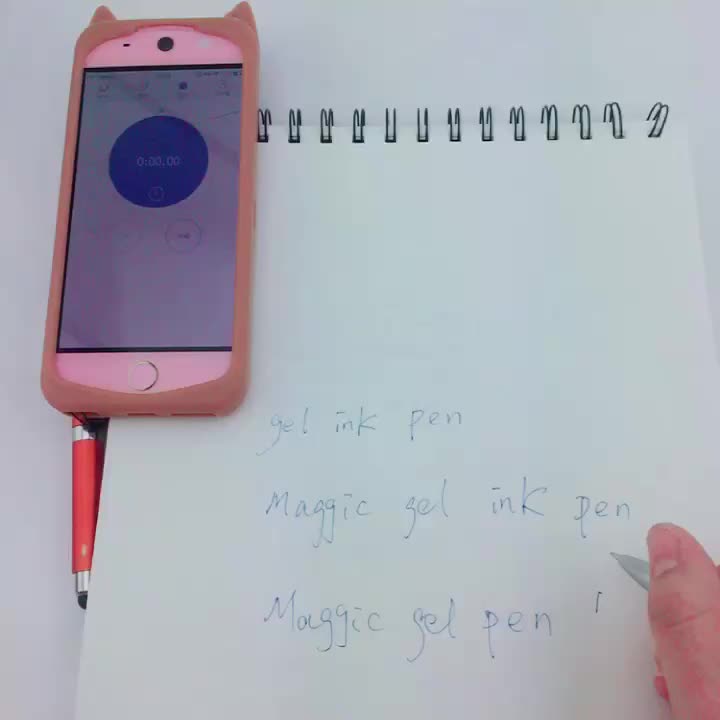 0:00.00
gel ink pen
Maggic gel ink pen
Maggic gel pen